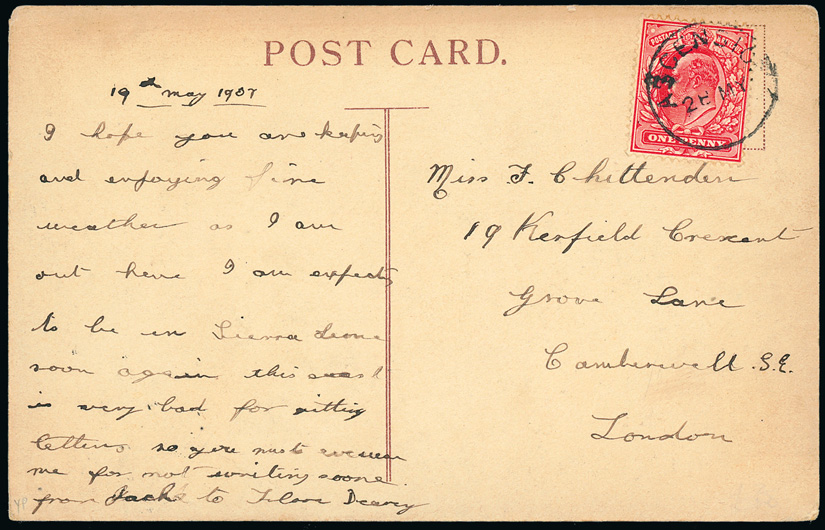 POST CARD.
19th May 1907
I hope you are keeping
and enjoying fine
weather as I am
out here I am expecting
to be in Sierra Leone
soon again this coast
is very bad for getting
letters so you must
me for not writing soone
from Jack to Deary
Miss F. Chittenden
19 Kerfield Crescent
Grove Lane
Camberwell. S.E.
London
POSTAGE
ONE PENNY
ASCENSION
28 MY